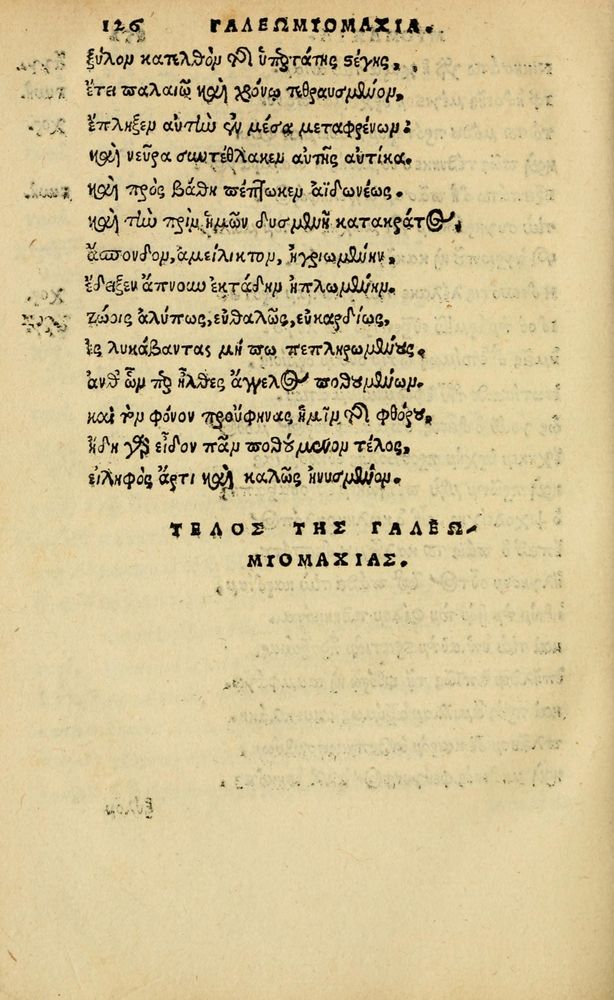 126 ΓΑΛΕΩΜΙΟΜΑΧΙΑ.
ξύλον κατελθὸν ἐξ ὑπερτάτης στέγης,
ἔτει παλαιῷ καὶ χρόνῳ τεθραυσμένον,
ἔπληξεν αὐτὴν ἐν μέσα μεταφρένων:
καὶ νεῦρα συντέθλακεν αὐτῆς αὐτίκα.
καὶ πρὸς βάθη πέπτωκεν ἀϊδωνέως.
καὶ τὴν πρὶν ἡμῶν δυσμενῆ κατακράτος,
ἄσπονδον, ἀμείλικτον, ἠγριωμένην,
ἔδειξεν ἄπνουν ἐκτάδην ἡπλωμένην.
ζώοις ἀλύπως, εὐθαλῶς, εὐκαρδίως,
ἐς λυκάβαντας μή πω πεπληρωμένους.
ἀνθ' ὧν περ ἦλθες ἄγγελος ποθουμένων.
καὶ τὸν φόνον προὔφηνας ἡμῖν τοῦ φθόρου,
ἤδη γὰρ εἶδον πᾶν ποθούμενον τέλος,
εἰληφὸς ἄρτι καὶ καλῶς ἠνυσμένον.
ΤΕΛΟΣ ΤΗΣ ΓΑΛΕΩ-
ΜΙΟΜΑΧΙΑΣ.